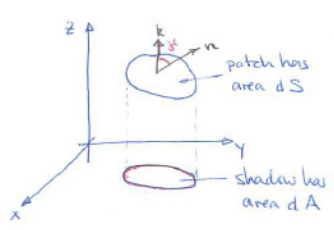 z
k
γ
n
patch has
area dS
y
shadow has
area dA
x